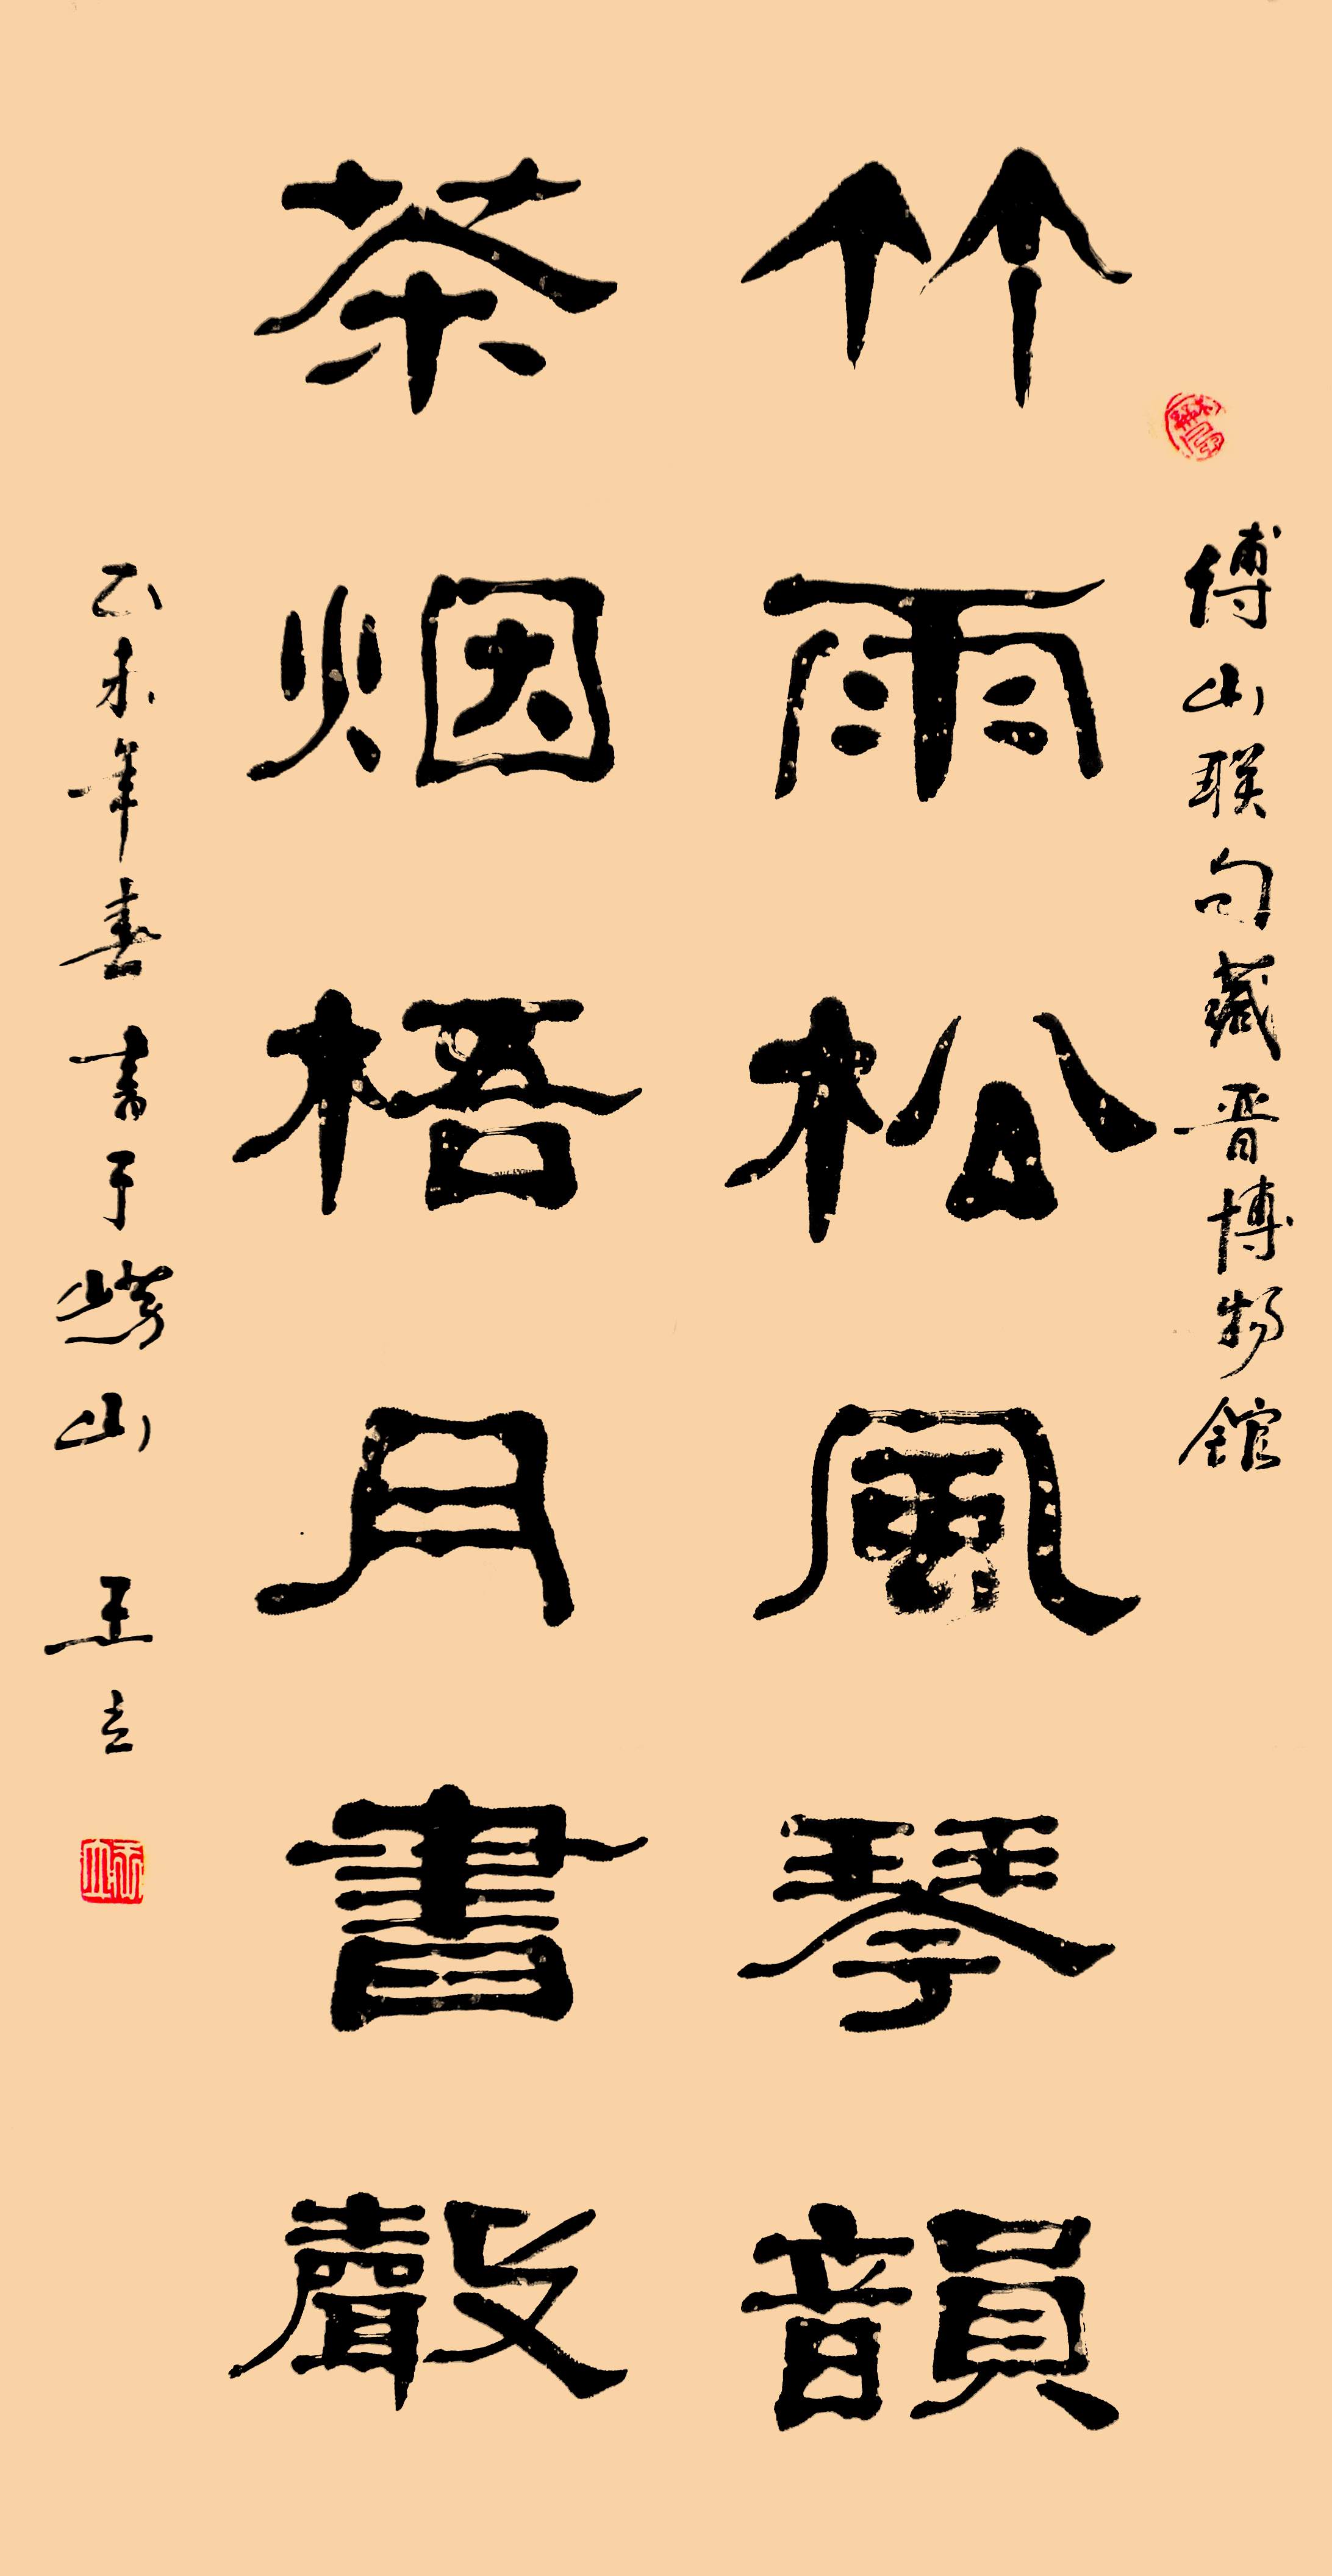 傅山联句藏晋博物館
竹雨松風琴韻
茶烟梧月書聲
乙未年春书于崂山 王立